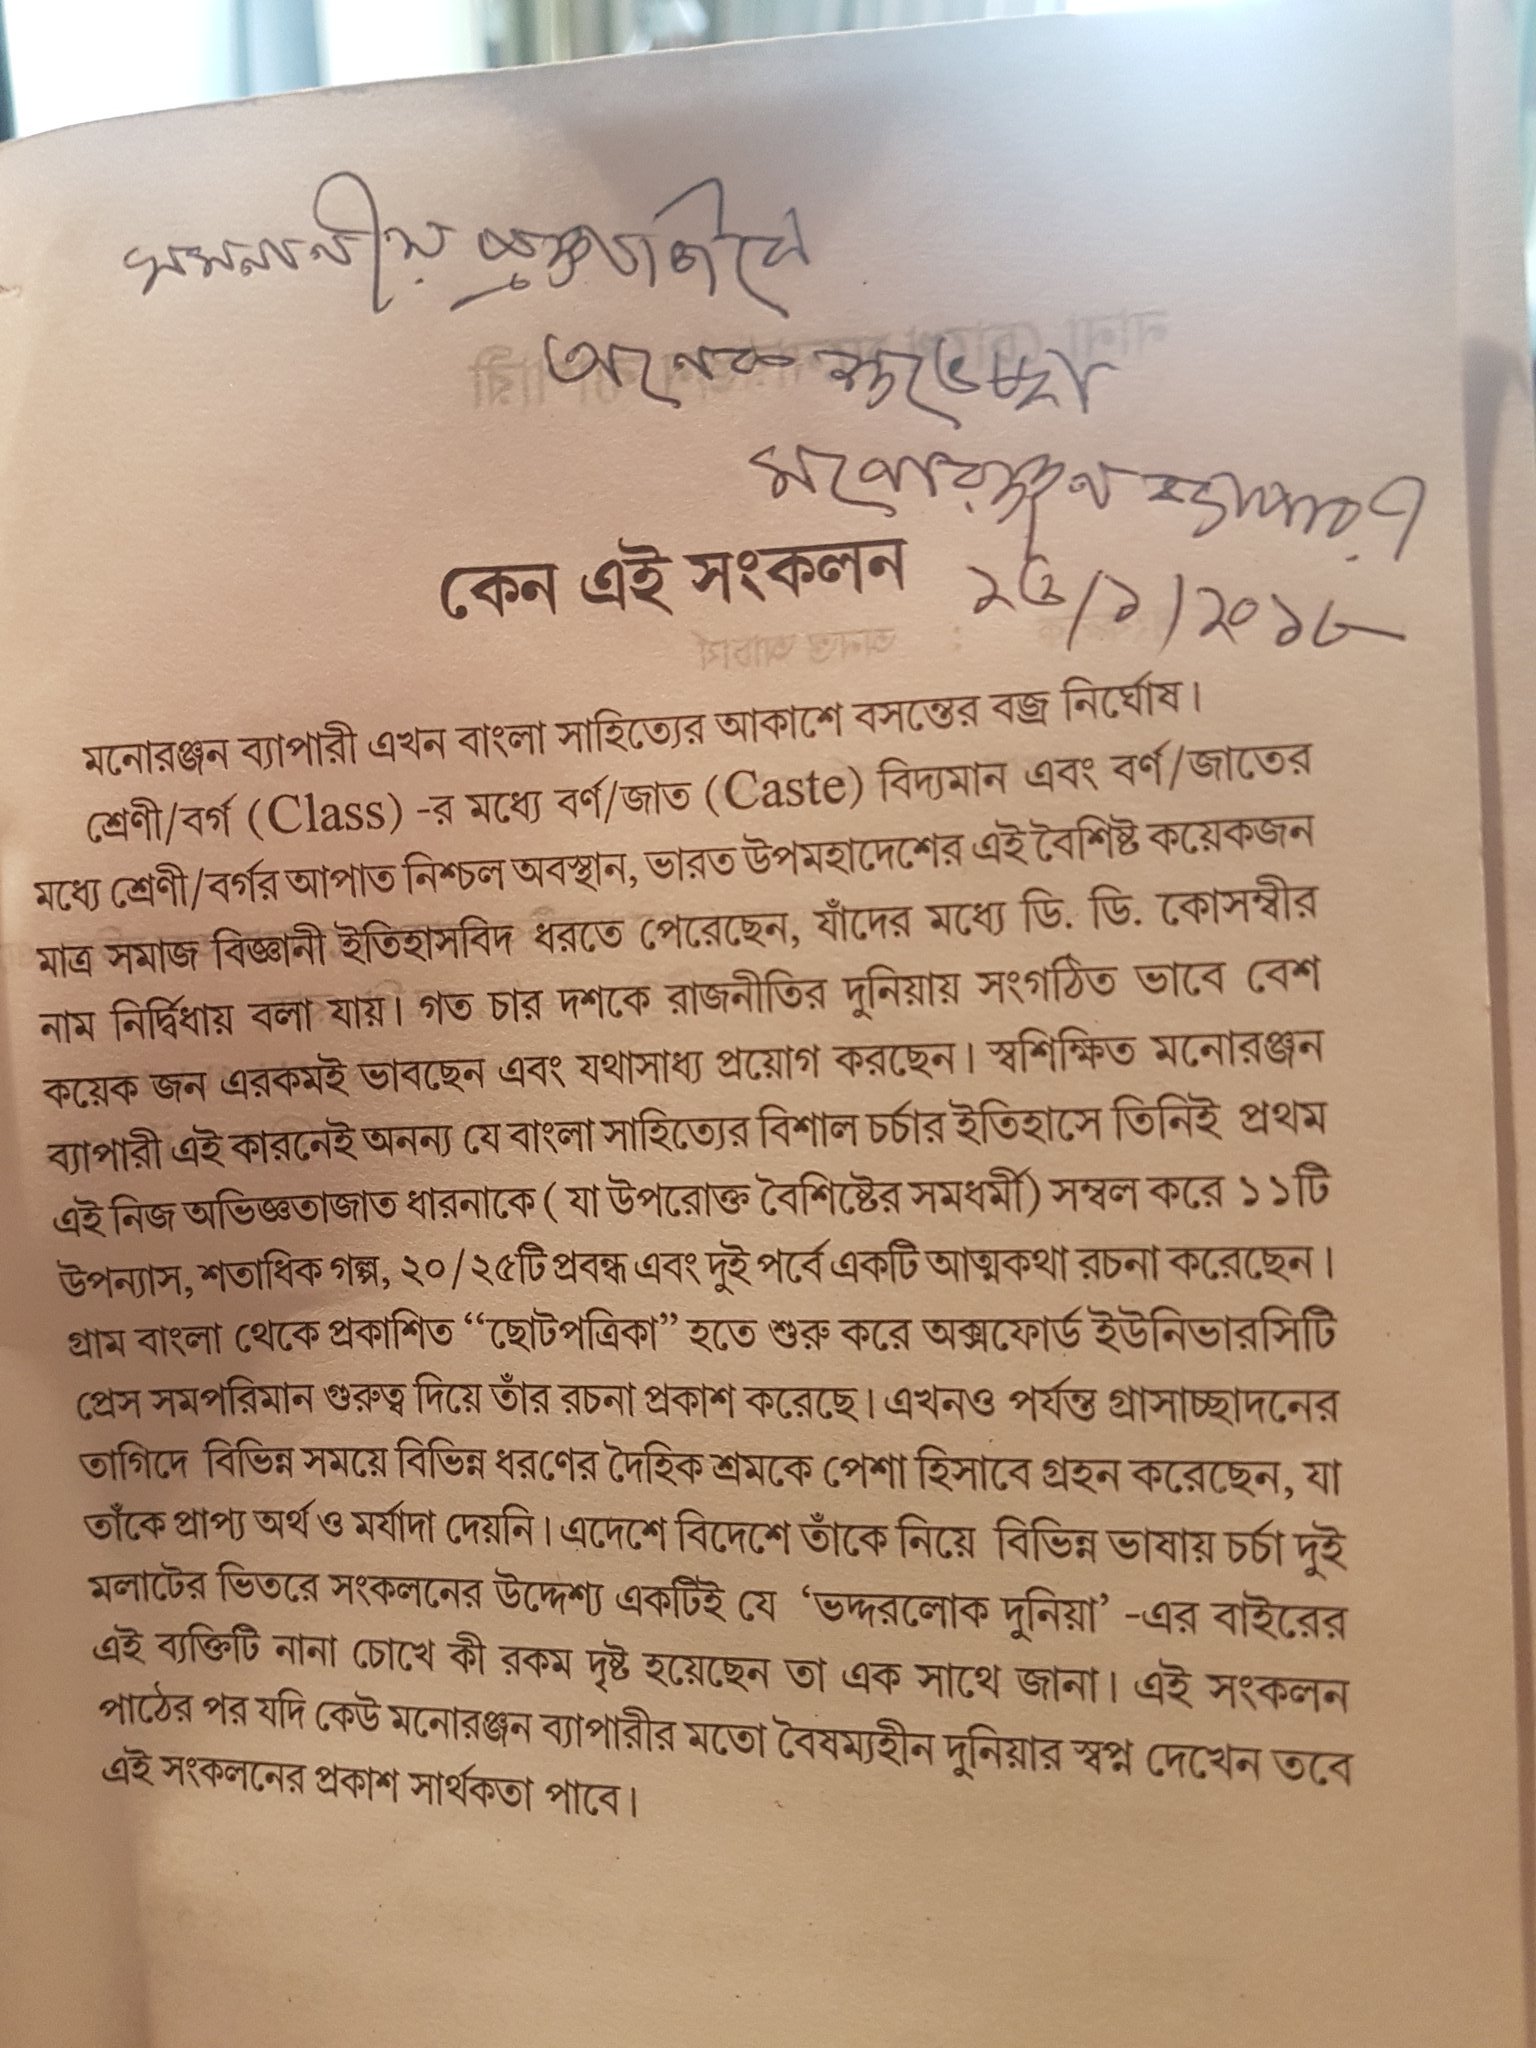 মাননীয়
অনেক শুভেচ্ছা
মনোরঞ্জন ব্যাপারী
কেন এই সংকলন
/১/২০১৮
মনোরঞ্জন ব্যাপারী এখন বাংলা সাহিত্যের আকাশে বসন্তের বজ্র নির্ঘোষ।
শ্রেণী/বর্গ (Class) -র মধ্যে বর্ণ/জাত (Caste) বিদ্যমান এবং বর্ণ/জাতের
মধ্যে শ্রেণী/বর্গর আপাত নিশ্চল অবস্থান, ভারত উপমহাদেশের এই বৈশিষ্ট কয়েকজন
মাত্র সমাজ বিজ্ঞানী ইতিহাসবিদ ধরতে পেরেছেন, যাঁদের মধ্যে ডি. ডি. কোসম্বীর
নাম নির্দ্বিধায় বলা যায়। গত চার দশকে রাজনীতির দুনিয়ায় সংগঠিত ভাবে বেশ
কয়েক জন এরকমই ভাবছেন এবং যথাসাধ্য প্রয়োগ করছেন। স্বশিক্ষিত মনোরঞ্জন
ব্যাপারী এই কারনেই অনন্য যে বাংলা সাহিত্যের বিশাল চর্চার ইতিহাসে তিনিই প্রথম
এই নিজ অভিজ্ঞতাজাত ধারনাকে ( যা উপরোক্ত বৈশিষ্টের সমধর্মী) সম্বল করে ১১টি
উপন্যাস, শতাধিক গল্প, ২০/২৫টি প্রবন্ধ এবং দুই পর্বে একটি আত্মকথা রচনা করেছেন।
গ্রাম বাংলা থেকে প্রকাশিত “ছোটপত্রিকা” হতে শুরু করে অক্সফোর্ড ইউনিভারসিটি
প্রেস সমপরিমান গুরুত্ব দিয়ে তাঁর রচনা প্রকাশ করেছে। এখনও পর্যন্ত গ্রাসাচ্ছাদনের
তাগিদে বিভিন্ন সময়ে বিভিন্ন ধরণের দৈহিক শ্রমকে পেশা হিসাবে গ্রহন করেছেন, যা
তাঁকে প্রাপ্য অর্থ ও মর্যাদা দেয়নি। এদেশে বিদেশে তাঁকে নিয়ে বিভিন্ন ভাষায় চর্চা দুই
মলাটের ভিতরে সংকলনের উদ্দেশ্য একটিই যে ‘ভদ্দরলোক দুনিয়া’ -এর বাইরের
এই ব্যক্তিটি নানা চোখে কী রকম দৃষ্ট হয়েছেন তা এক সাথে জানা। এই সংকলন
পাঠের পর যদি কেউ মনোরঞ্জন ব্যাপারীর মতো বৈষম্যহীন দুনিয়ার স্বপ্ন দেখেন তবে
এই সংকলনের প্রকাশ সার্থকতা পাবে।